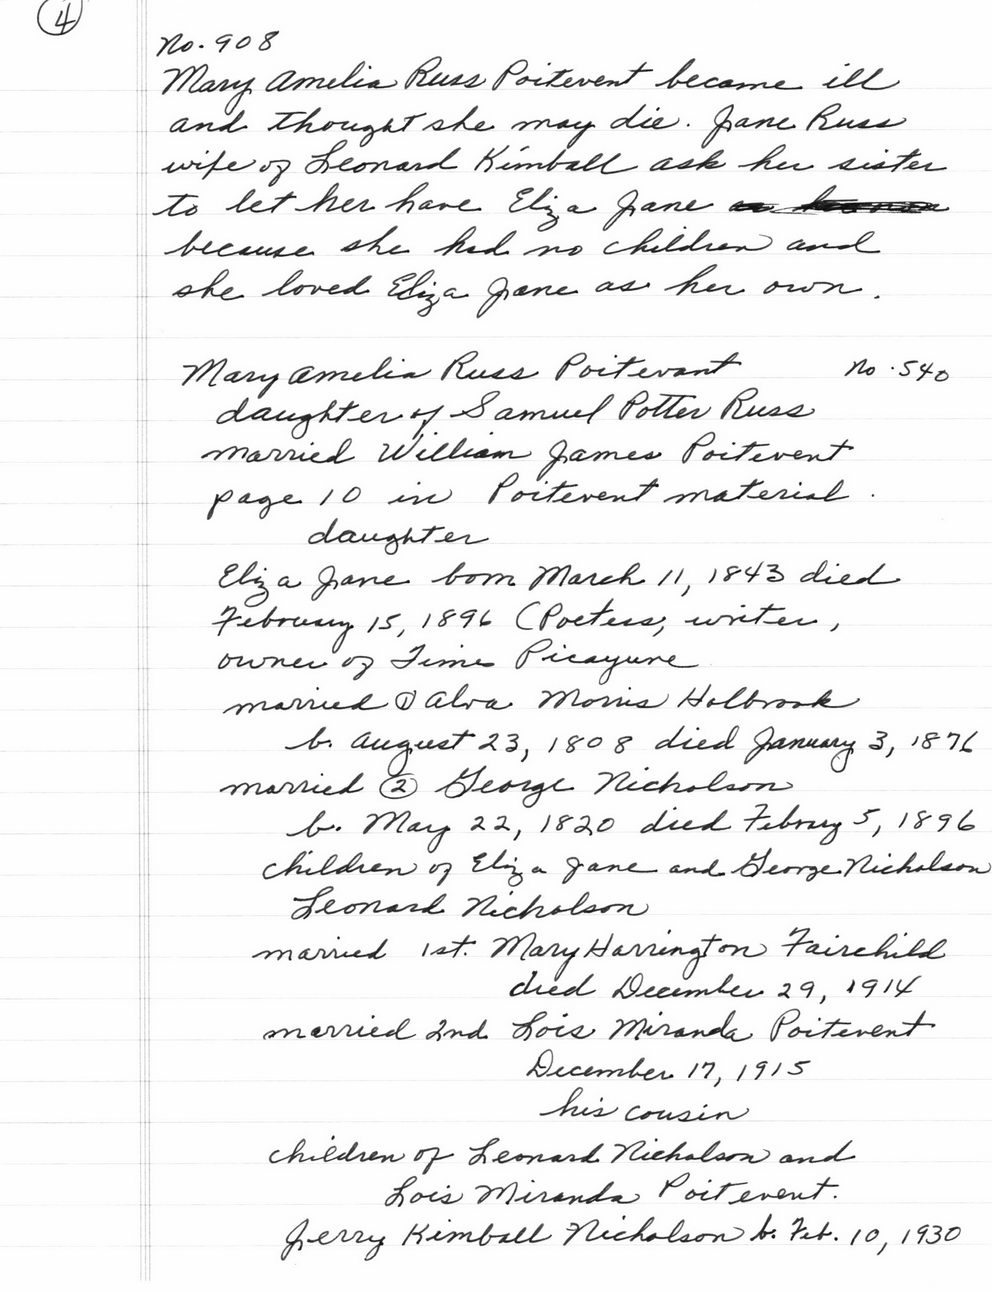 4
No. 908
Mary Amelia Russ Poitevent became ill
and thought she may die. Jane Russ
wife of Leonard Kimball ask her sister
to let her have Eliza Jane
because she had no children and
she loved Eliza Jane as her own.
Mary Amelia Russ Poitevant No. 540
daughter of Samuel Potter Russ
married William James Poitevent
page 10 in Poitevent material.
daughter
Eliza Jane born March 11, 1843 died
February 15, 1896 (Poetess, writer,
owner of Times Picayune
married ① Alva Morris Holbrook
b. August 23, 1808 died January 3, 1876
married ② George Nicholson
b. May 22, 1820 died Februry 5, 1896
children of Eliza Jane and George Nicholson
Leonard Nicholson
married 1st. Mary Harrington Fairchild
died December 29, 1914
married 2nd Lois Miranda Poitevent
December 17, 1915
his cousin
children of Leonard Nicholson and
Lois Miranda Poitevent.
Jerry Kimball Nicholson b. Feb. 10, 1930